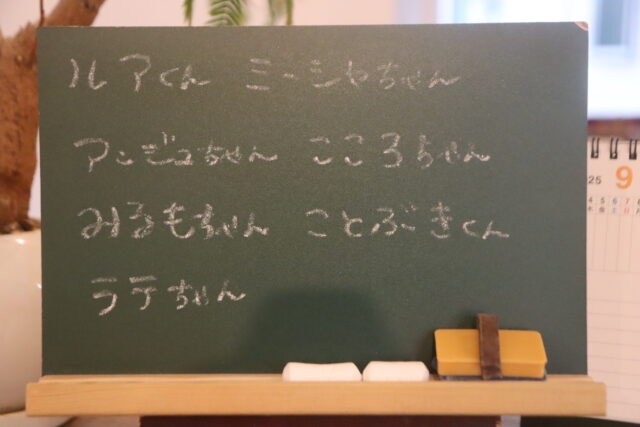 ルアくん ミーシャちゃん
アンジュちゃん こころちゃん
みるもちゃん ことぶきくん
ラテちゃん
25 9